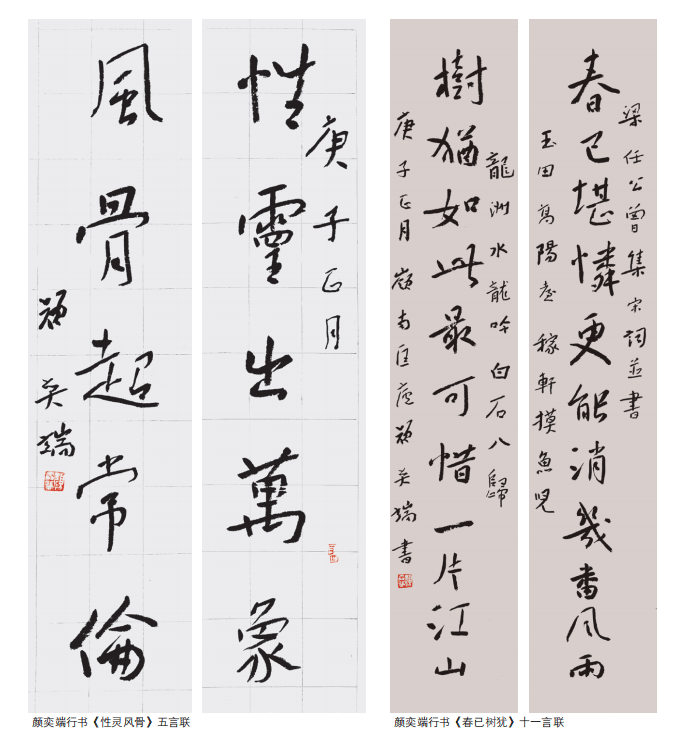 性靈出萬象
庚子正月
風骨超常倫
颜奕端
春已堪憐更能消幾番風雨
梁任公曾集宋詞並書
玉田高陽臺 稼軒摸魚兒
樹猶如此最可惜一片江山
龍洲水龍吟 白石八歸
庚子正月嶺南匡廬颜奕端書
颜奕端行书《性灵风骨》五言联
颜奕端行书《春已树犹》十一言联